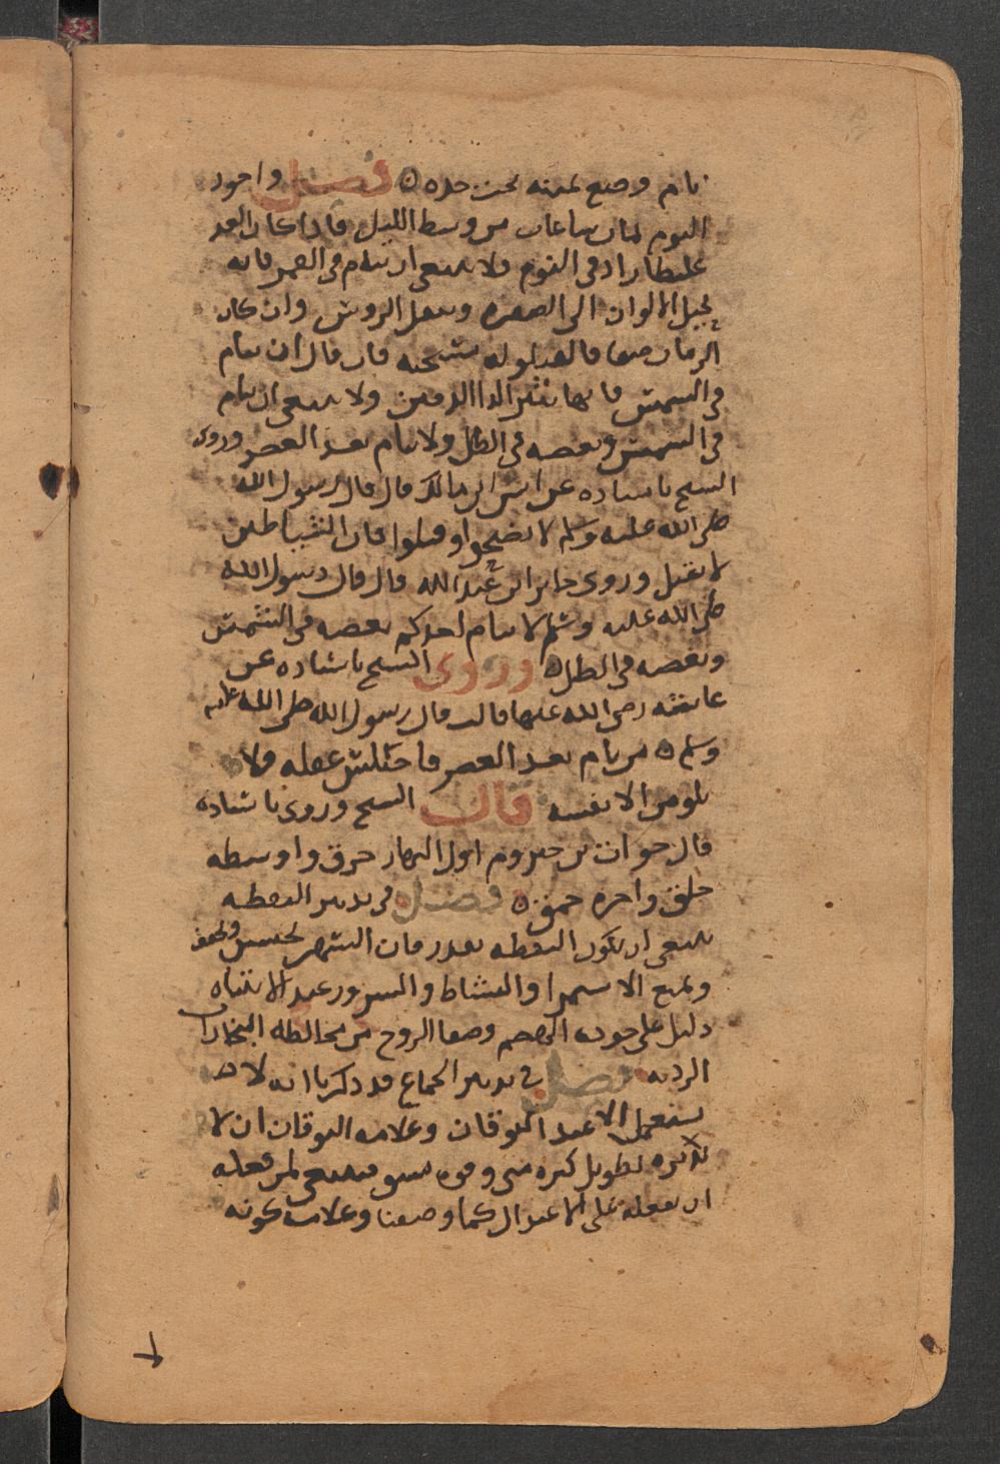 نام وضع يمينه تحت خده ٥ فصل واجود
النوم ثمان ساعات من وسط الليل فاذا كان الغذا
غليظا زاد في النوم ولا ينبغي ان ينام في القمر فانه
يحيل الالوان الى الصفرة ويثقل الروس وان كان
الزمان صيفا فالقيلولة مستحبة فان قال ان ينام
في الشمس فانها تثير الدا الدفين ولا ينبغي ان ينام
في الشمس وبعضه في الظل ولا ينام بعد العصر وروى
الشيخ باسناده عن انس ابن مالك قال قال رسول الله
صلى الله عليه وسلم لا تصبحوا وقيلوا فان الشياطين
لا تقيل وروى جابر ابن عبد الله قال قال رسول الله
صلى الله عليه وسلم لا ينام احدكم بعضه في الشمس
وبعضه في الظل ٥ وروى الشيخ باسناده عن
عايشه رضي الله عنها قالت قال رسول الله صلى الله عليه
وسلم ٥ من نام بعد العصر فاختلس عقله فلا
يلومن الا نفسه قال الشيخ وروى باسناده
قال خوات بن جبير نوم اول النهار خرق واوسطه
خلق واخره حمق ٥ فصل في تدبير اليقظه
ينبغي ان تكون اليقظه بقدر فان السهر يجفف
ويمنع الاستمرا والنشاط والسرور عند الانتباه
دليل على جودة الهضم وصفا الروح من مخالطة البخارات
الرديه فصل في تدبير الجماع قد ذكرنا انه لا
يستعمل الا عند التوقان وعلامة التوقان ان لا
يكون بطويل كثرة مني وقوة شبق فينبغي لمن فعله
ان يفعله على الاعتدال كما وصفنا وعلامة كونه